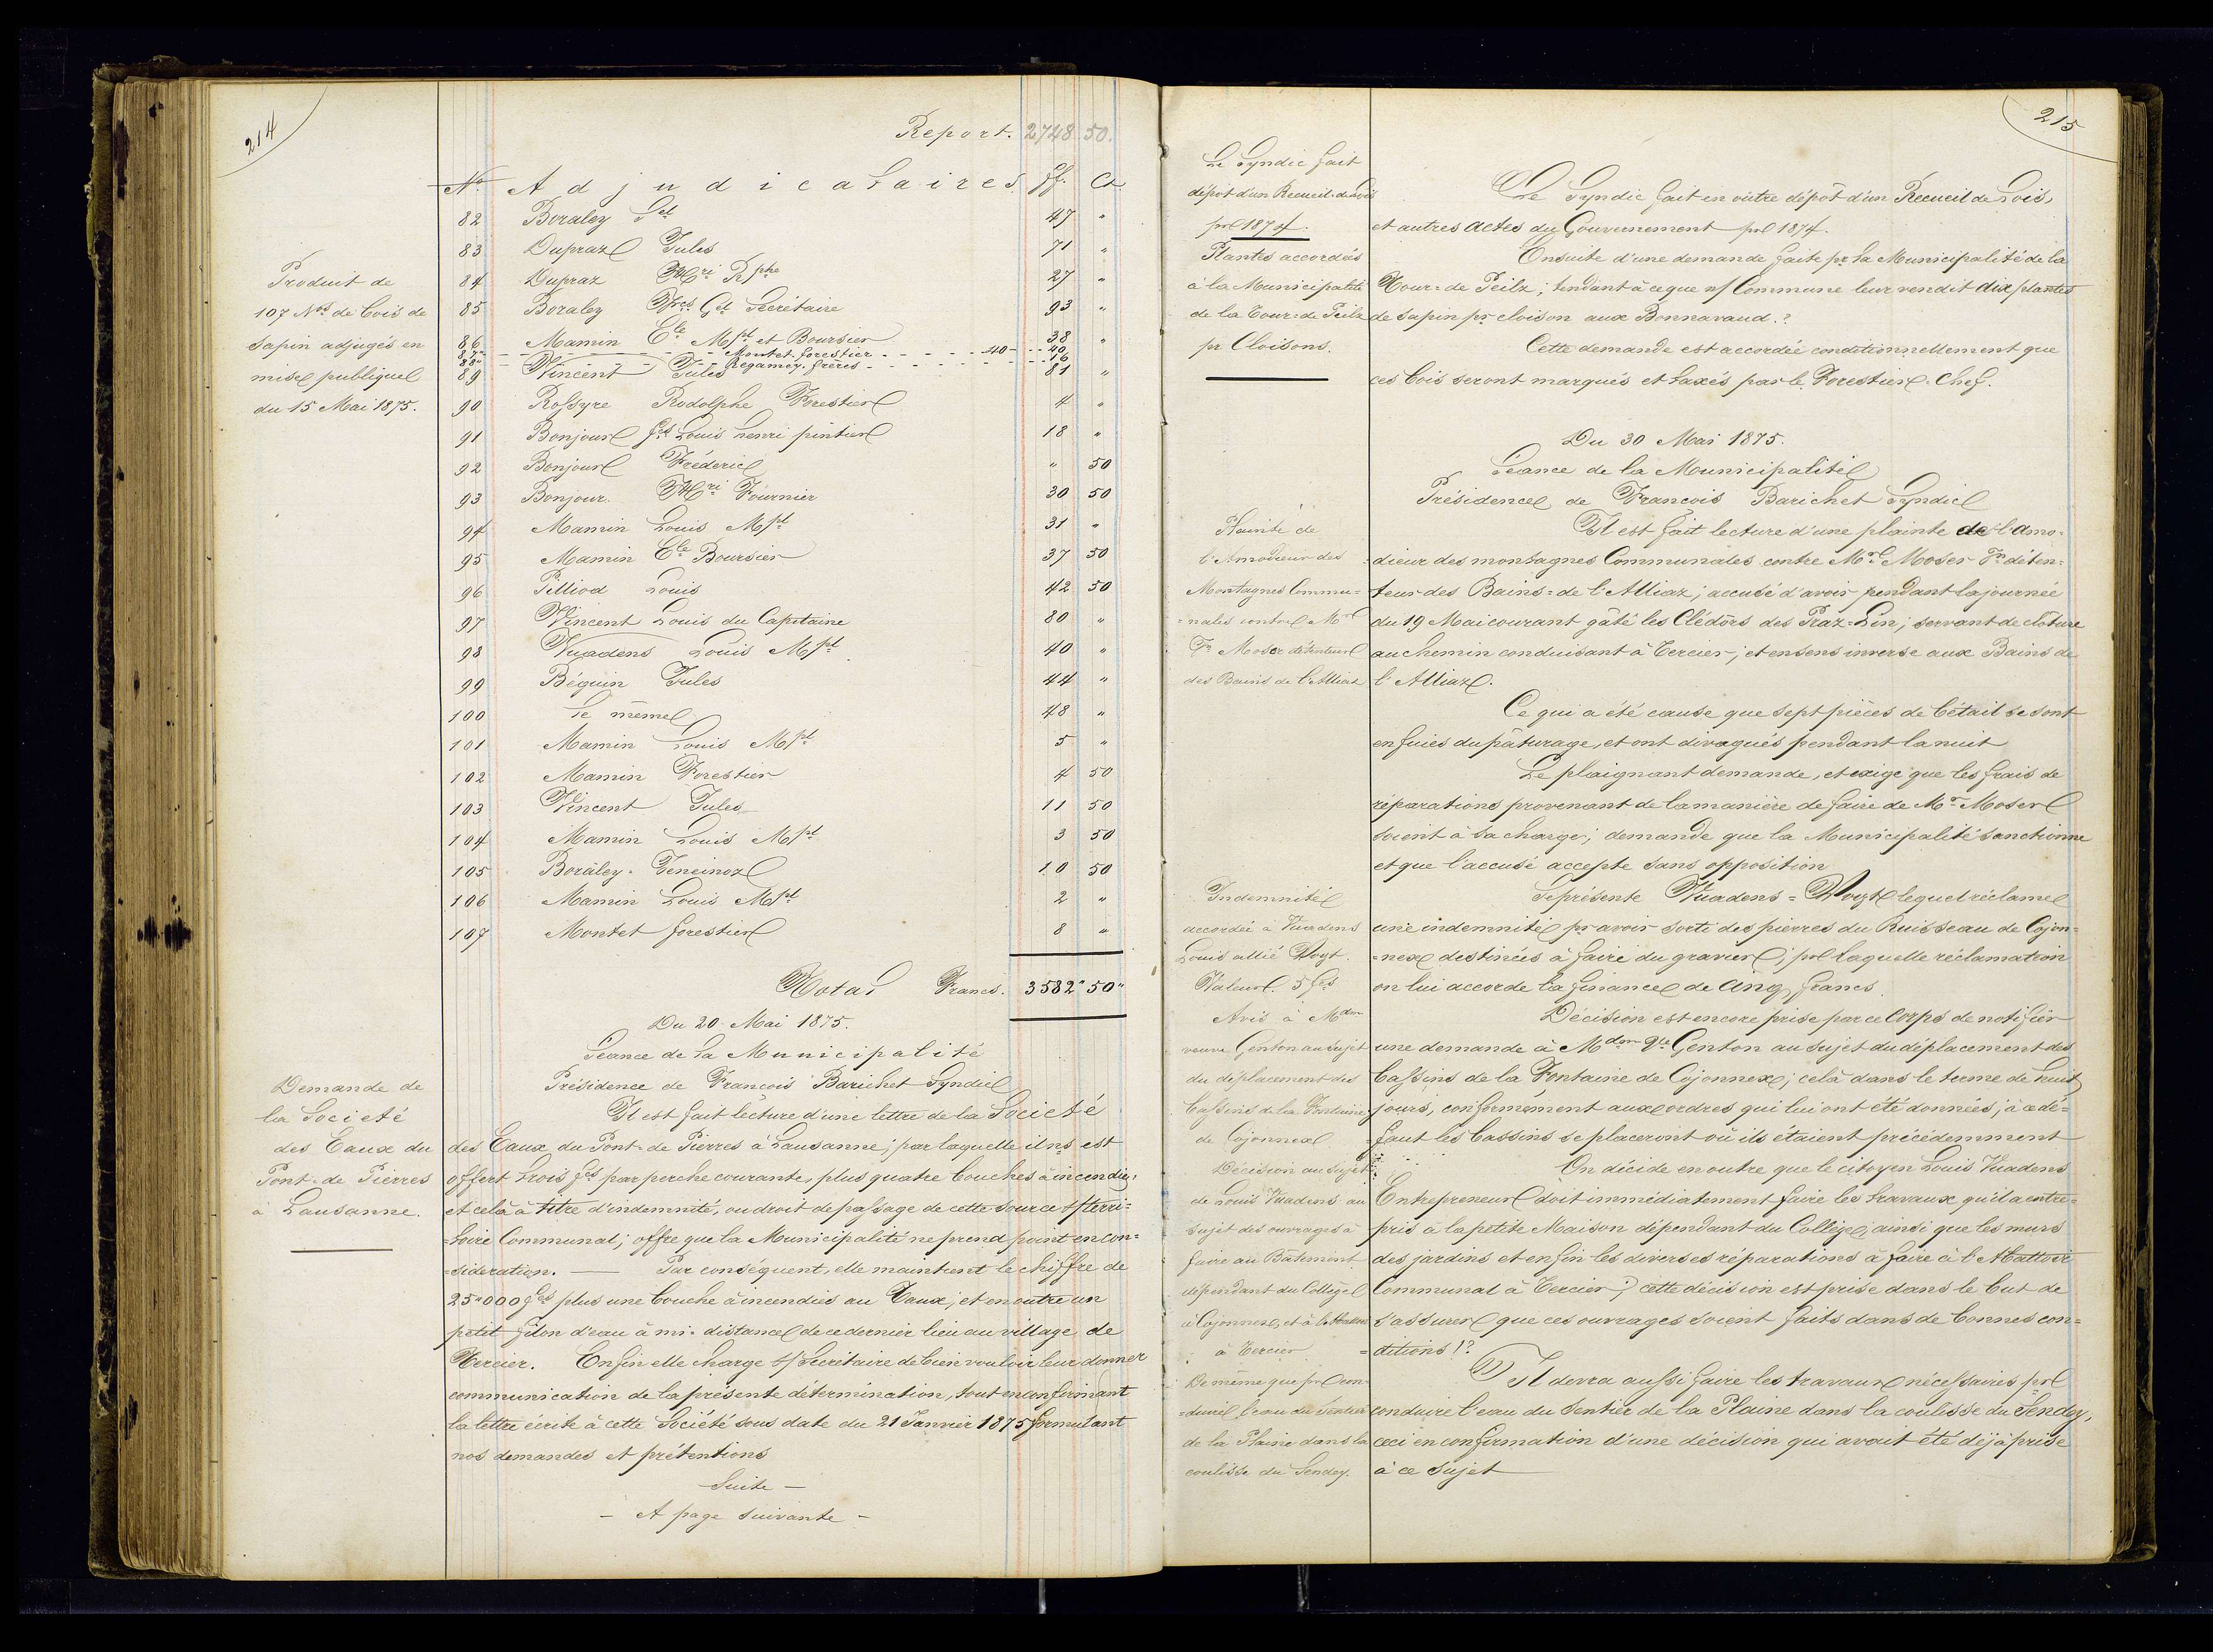 214
Report. 2748 50.
No. Adjudicataires. ff. Ct.
82 Boraley Gel 47 "
83 Dupraz Jules 71 "
84 Dupraz Hri Rphe 27 "
85 Boraley Frcs Gel Secrétaire 93 "
86 Mamin Ele Mpl et Boursier 38 "
87 Montet forestier 40 40
88 Regamey frères 16
89 Vincent Jules 81 "
90 Rossyre Rodolphe Forestier 4 "
91 Bonjour fcs Louis henri pintier 18 "
92 Bonjour Fréderic " 50
93 Bonjour. Hri Fournier 30 50
94 Mamin Louis Mpl 31 "
95 Mamin Ele Boursier 37 50
96 Pilliod Louis 42 50
97 Vincent Louis du Capitaine 80 "
98 Vuadens Louis Mpl 40 "
99 Béguin Jules 44 "
100 Le même 48 "
101 Mamin Louis Mpl 5 "
102 Mamin Forestier 4 50
103 Vincent Jules 11 50
104 Mamin Louis Mpl 3 50
105 Boraley-Teneinoz 10 50
106 Mamin Louis Mpl 2 "
107 Montet forestier 8 "
Total Francs. 3582" 50"
Produit de
107 Nos de bois de
sapin adjugés en
mise publique
du 15 Mai 1875.
Du 20 Mai 1875.
Séance de la Municipalité
Présidence de Francois Barichet Syndic
Il est fait lecture d'une lettre de la Societé
des Eaux du Pont-de Pierres à Lausanne; par laquelle il ns est
offert trois fcs par perche courante, plus quatre bouches à incendie,
et celà à titre d'indemnité, ou droit de passage de cette source s/terri=
=toire Communal; offre que la Municipalité ne prend point en con=
=sidération. — Par conséquent, elle maintient le chiffre de
25"000 fcs plus une bouche à incendies au Vaux; et en outre un
petit filon d'eau à mi-distance de ce dernier lieu au village de
Tercier. Enfin elle charge s/ Secrétaire de bien vouloir leur donner
communication de la présente détermination, tout en confirmant
la lettre écrite à cette Société sous date du 21 Janvier 1875 formulant
nos demandes et prétentions
Suite —
— A page suivante —
Demande de
la Societé
des Eaux du
Pont-de Pierres
à Lausanne.
215
Le Syndic fait
dépôt d'un Recueil de Lois
pr 1874.
Le Syndic fait en outre dépôt d'un Recueil de Lois,
et autres actes du Gouvernement pr 1874.
Plantes accordés
à la Municipalité
de la Tour=de Peilz
pr Cloisons.
Ensuite d'une demande faite pr la Municipalité de la
Tour=de Peilz; tendant à ce que n/ Commune leur vendit dix plantes
de sapin pr cloison aux Bonnavaud.?
Cette demande est accordée conditionnellement que
ces bois seront marqués et taxés par le Forestier-Chef.
Du 30 Mai 1875.
Séance de la Municipalité
Présidence de Francois Barichet Syndic
Plainte de
l'Amodieur des
Montagnes Commu=
=nales contre Mr
Fs Moser détenteur
des Bains de l'Alliaz
Il est fait lecture d'une plainte de l'amo=
=dieur des montagnes Communales contre Mr Moser Fs déten=
teur des Bains=de l'Alliaz; accusé d'avoir pendant la journée
du 19 Mai courant gâté les Clédors des Praz=Lin; servant de clôture
au chemin conduisant à Tercier; et en sens inverse aux Bains de
l'Alliaz.
Ce qui a été cause que sept pièces de bétail se sont
enfuies du pâturage, et ont divagués pendant la nuit
Le plaignant demande, et exige que les frais de
réparations provenant de la manière de faire de Mr Moser
soient à sa charge; demande que la Municipalité sanctionne
et que l'accusé accepte sans opposition
Indemnité
accordée à Vuadens
Louis allié Voyt.
Valeur. 5 fcs
Se présente Vuadens=Voyt lequel réclame
une indemnité pr avoir sorti des pierres du Ruisseau de Cojon=
=nex destinées à faire du gravier; pr laquelle réclamation
on lui accorde la finance de cinq francs.
Avis à Mdm
veuve Genton au sujet
du déplacement des
bassins de la Fontaine
de Cojonnex
Décision est encore prise par ce Corps de notifier
une demande à Mdm Vve Genton au sujet du déplacement des
bassins de la Fontaine de Cojonnex; celà dans le terme de huit
jours, conformément aux ordres qui lui ont été données; à ce dé=
=faut les bassins se placeront où ils étaient précédemment
Décision au sujet
de Louis Vuadens au
sujet des ouvrages à
faire au Bâtiment
dépendant du Collège
à Cojonnex, et à l'Abattoir
à Tercier
On décide en outre que le citoyen Louis Vuadens
Entrepreneur doit immédiatement faire les travaux qu'il a entre=
pris à la petite Maison dépendant du Collège; ainsi que les murs
des jardins et enfin les diverses réparations à faire à l'Abattoir
Communal à Tercier; cette décision est prise dans le but de
s'assurer que ces ouvrages soient faits dans de bonnes con=
=ditions!?
De même que pr con=
=duire l'eau du Sentier
de la Plaine dans la
coulisse du Sendey.
Il devra aussi faire les travaux nécessaires pr
conduire l'eau du Sentier de la Plaine dans la coulisse du Sendey,
ceci en confirmation d'une décision qui avait été déjà prise
à ce sujet